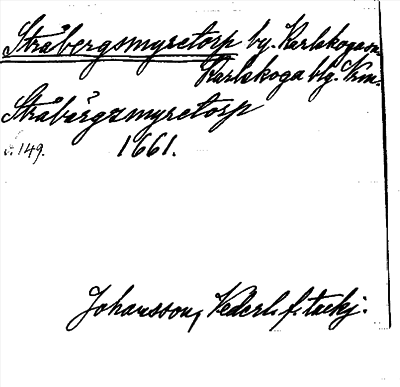 Stråbergsmyretorp by. Karlskoga sn.
Karlskoga bg. Vrm.
Stråbërgsmyretorp
s. 149. 1661.
Johansson, Vederl. f. tackj.